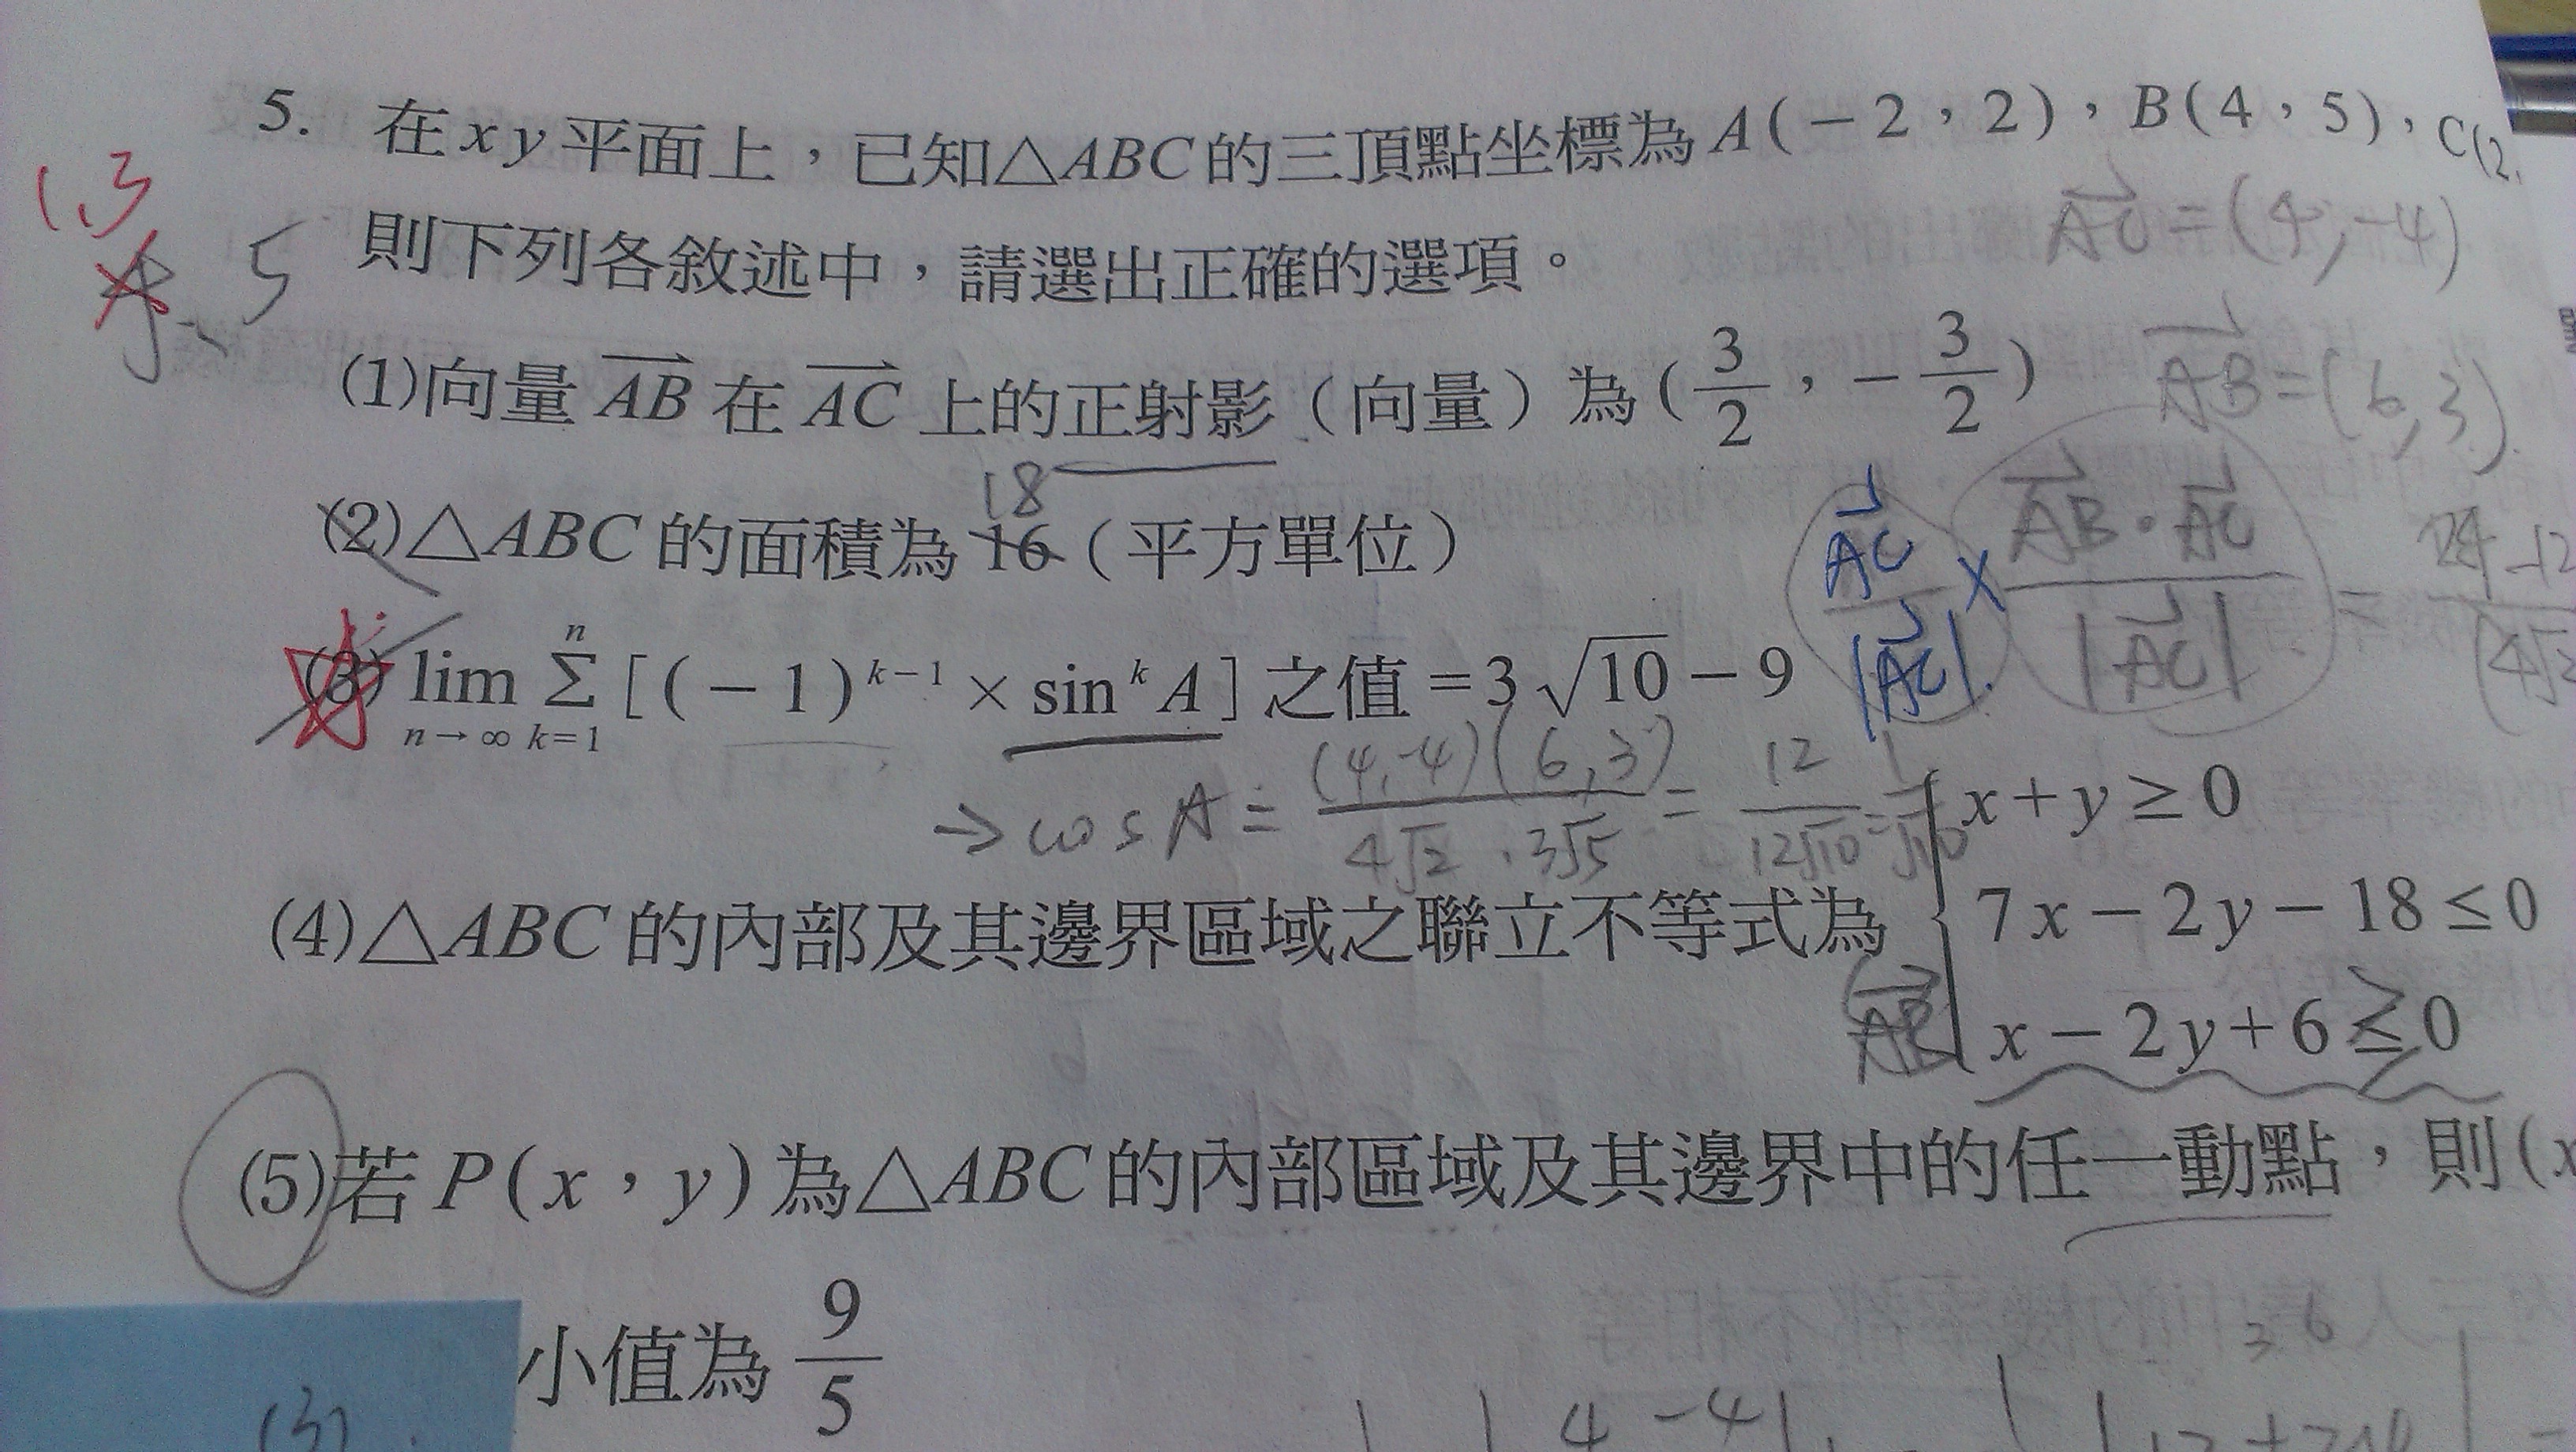 5. 在xy平面上，已知△ABC的三頂點坐標為A(-2，2)，B(4，5)，C(2,
1,3
4、5
則下列各敘述中，請選出正確的選項。
AC=(4,-4)
(1)向量 AB 在 AC 上的正射影（向量）為(3/2，-3/2)
AB=(6,3)
18
(2)△ABC 的面積為 16（平方單位）
AC/|AC| × AB·AC/|AC| = 24-12
(3) lim n→∞ Σ k=1 n [(-1)^{k-1} × sin^k A] 之值=3√10-9
→cos A = (4,-4)(6,3)/4√2·3√5 = 12/12√10 = 1/√10
x+y≥0
(4)△ABC 的內部及其邊界區域之聯立不等式為 7x-2y-18≤0
AB x-2y+6≥0
(5)若P(x，y)為△ABC的內部區域及其邊界中的任一動點，則(x
小值為 9/5
36
(3)
4 -4